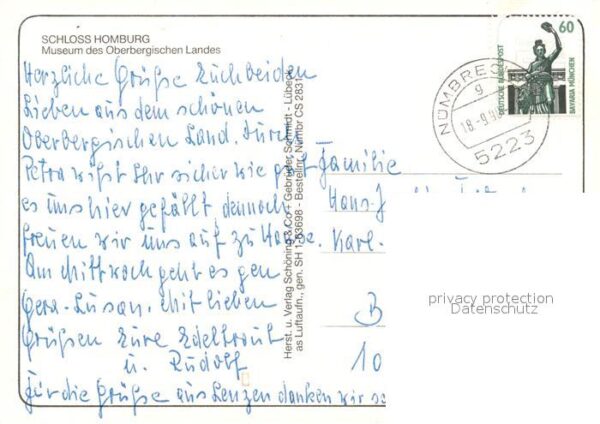 SCHLOSS HOMBURG
Museum des Oberbergischen Landes
Herzliche Grüße Euch beiden
Lieben aus dem schönen
Oberbergischen Land. Durch
Petra wißt Ihr sicher wie gut
es uns hier gefällt dennoch
freuen wir uns auf zu Hause.
Am Mittwoch geht es gen
Gera-Lusan. Mit lieben
Grüßen Eure Edeltraut
u. Rudolf
Für die Grüße aus danken wir
Herst. u. Verlag Schöning & Co + Gebrüder Schmidt - Lübeck
as Luftaufn., gen. SH 1-63698 - Bestellnr. Nümbr CS 2831
60
DEUTSCHE BUNDESPOST
BAVARIA MÜNCHEN
NÜMBRECHT
g
18.-9.9
5223
Familie
Hans-J
Karl-
B
10
privacy protection
Datenschutz